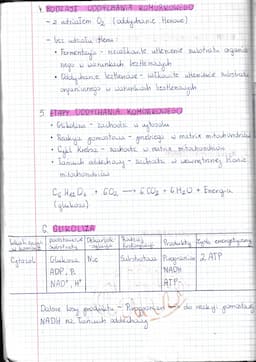 4. RODZAJE ODDYCHANIA KOMÓRKOWEGO
- z udziałem O₂ (oddychanie tlenowe)
- bez udziału tlenu:
• Fermentacja - niecałkowite utlenienie substratu organicz
nego w warunkach beztlenowych
• Oddychanie beztlenowe - całkowite utlenienie substratu
organicznego w warunkach beztlenowych
5. ETAPY ODDYCHANIA KOMÓRKOWEGO
• Glikoliza - zachodzi w cytozolu
• Reakcja pomostowa - przebiega w matrix mitochondrium
• Cykl Krebsa - zachodzi w matrix mitochondrium
• Łańcuch oddechowy - zachodzi w wewnętrznej błonie
mitochondrium
C₆H₁₂O₆ + 6O₂ → 6CO₂ + 6H₂O + Energia
(glukoza)
6. GLIKOLIZA
podstawowe substraty Produkty Zysk energetyczny
Cytozol Glukoza Nie Substratowa Pirogronian 2 ATP
ADP, Pi NADH
NAD⁺, H⁺ ATP
Dalsze losy produktu - Pirogronian do reakcji pomostowej
NADH na łańcuch oddechowy